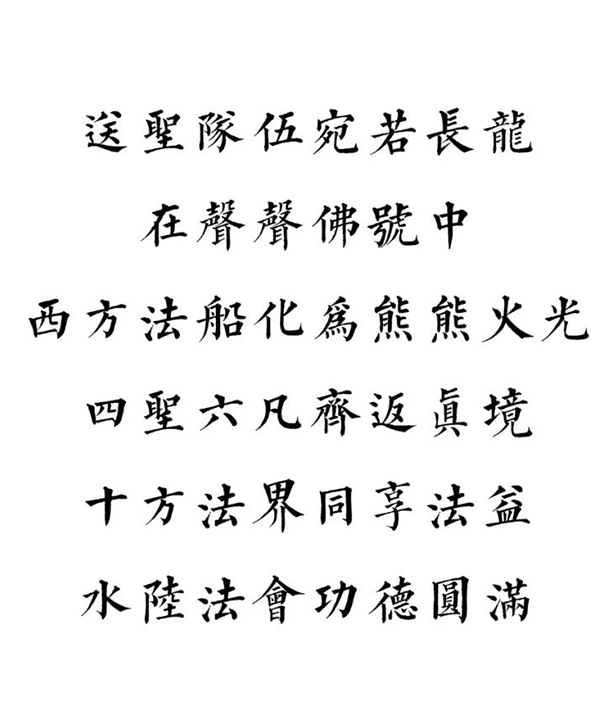 送聖隊伍宛若長龍
在聲聲佛號中
西方法船化爲熊熊火光
四聖六凡齊返眞境
十方法界同享法益
水陸法會功德圓滿